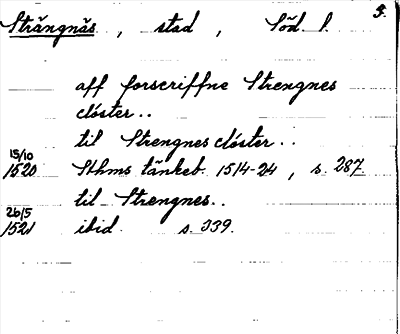 5.
Strängnäs, stad, Söd. l.
aff forscriffne Strengnes
clóster..
til Strengnes clóster..
15/10
1520 Sthms tänkeb. 1514-24, s. 287.
til Strengnes..
26/5
1521 ibid. s. 339.